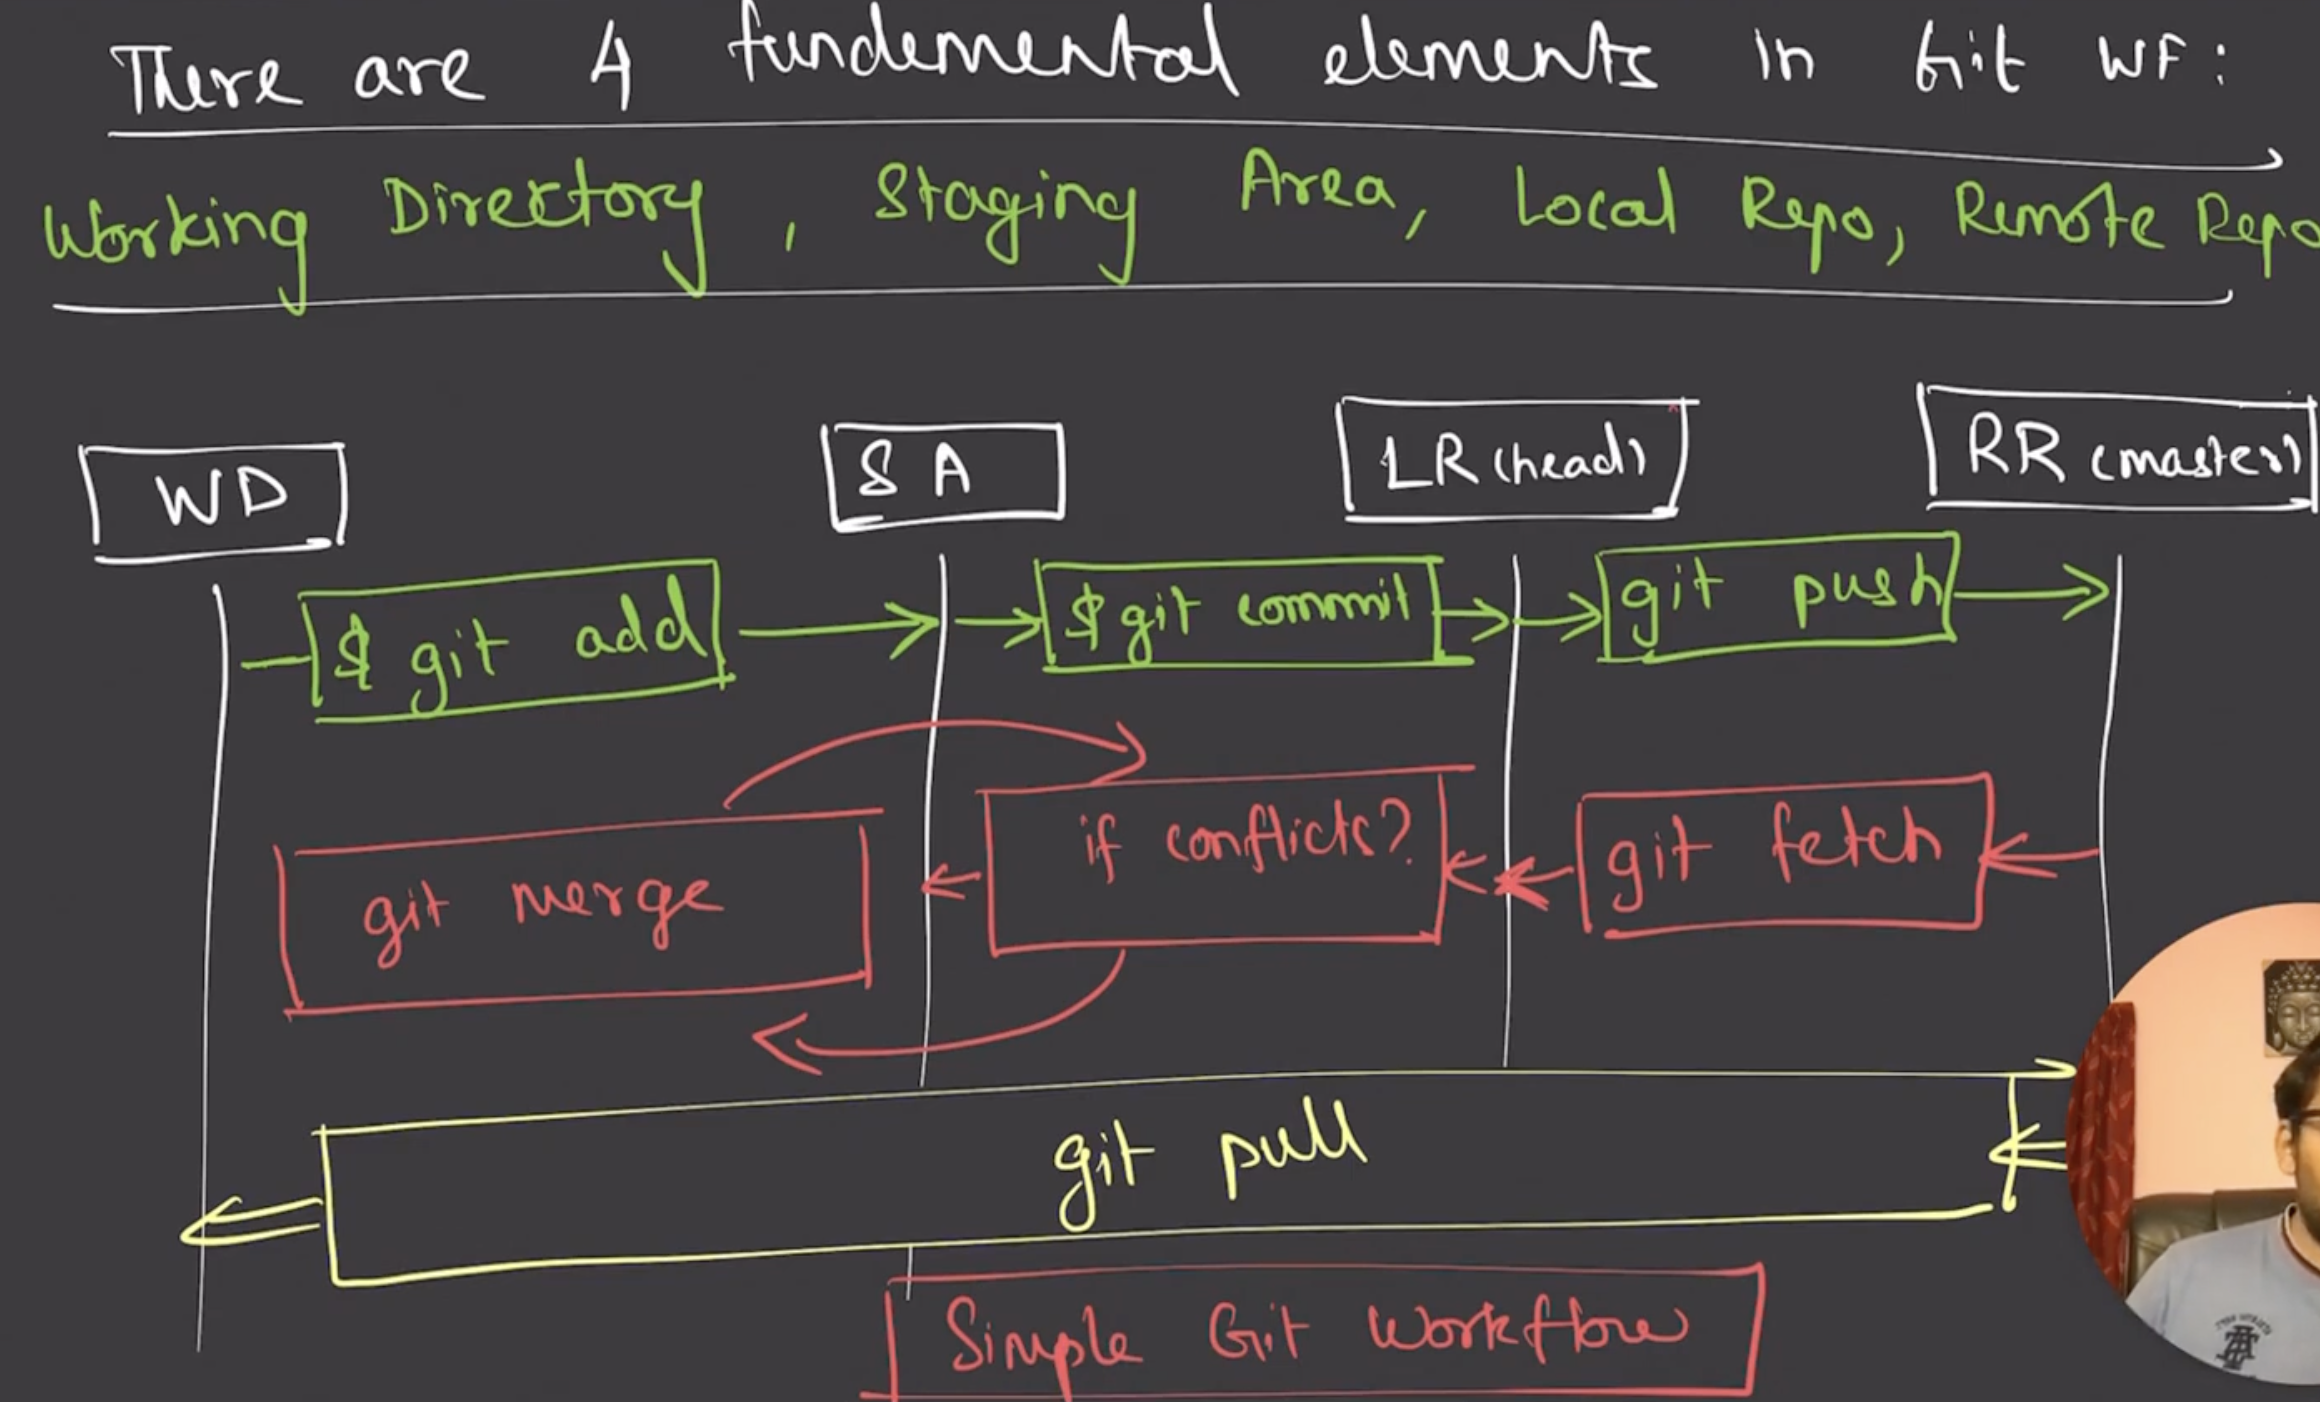 There are 4 fundemental elements in Git WF:
Working Directory, Staging Area, Local Repo, Remote Repo
WD
SA
LR (head)
RR (master)
$ git add
$ git commit
git push
git merge
if conflicts?
git fetch
git pull
Simple Git Workflow